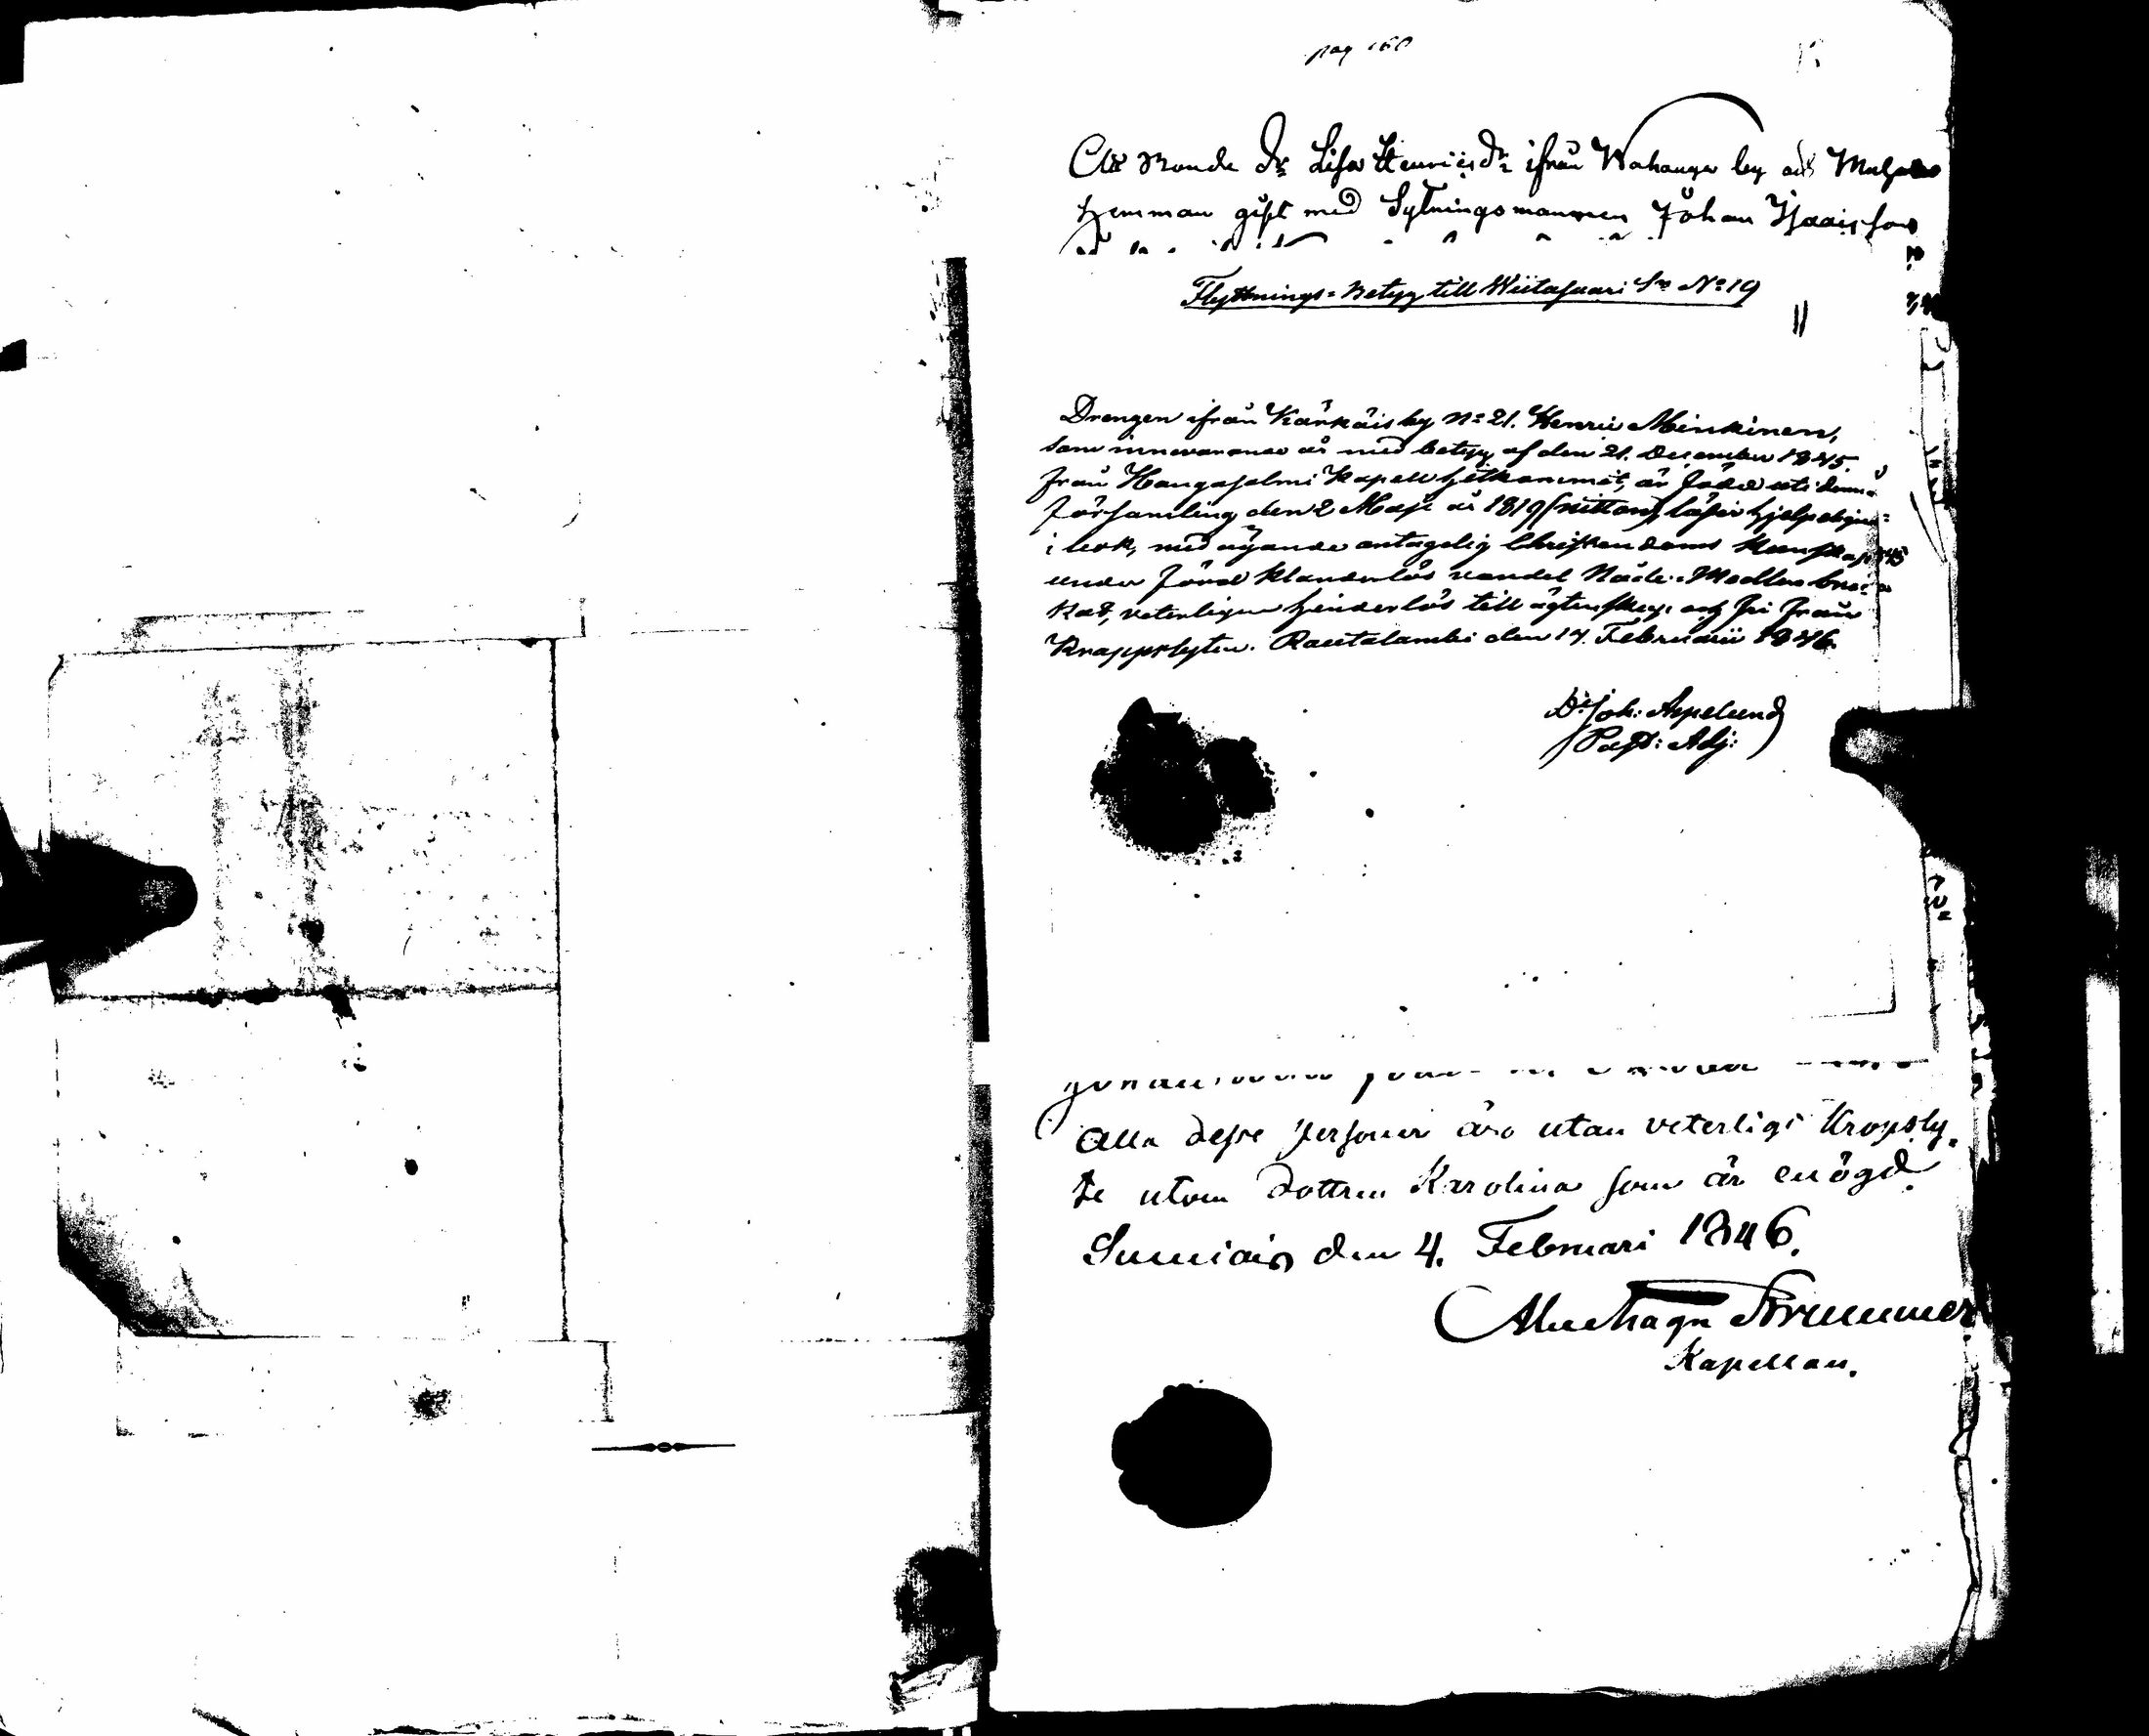 pag 160
Att Bonde Dr Lisa Henricsdr ifrån Wahanga by och
Hemman gift med Sytningsmannen Johan Isaacsson
Flyttnings-Betyg till Wiitasaari Sn No 19
Drengen ifrån Kärkäis by No 21. Henric Minkinen,
som innevarande år med betyg af den 21. December 1845.
från Hangasalmi Kapell hitkommit, är född uti denna
Församling den 2 Maji år 1819 (nitton), läser hjelpeligen
i bok, med ägande antagelig Christendoms Kunskap
under förd klanderlös vandel Nåde-Medlen bru-
kat, veterligen hinderlös till ägtenskap och fri från
Kroppslyten. Rautalambi den 17. Februarii 1846.
Joh: Aspelund
Past: Adj:
Alla desse personer äro utan veterligt Kropsly-
te utom dottren Karolina som är enögd.
Sumiais den 4. Februari 1846.
Brummer
Kapellan.